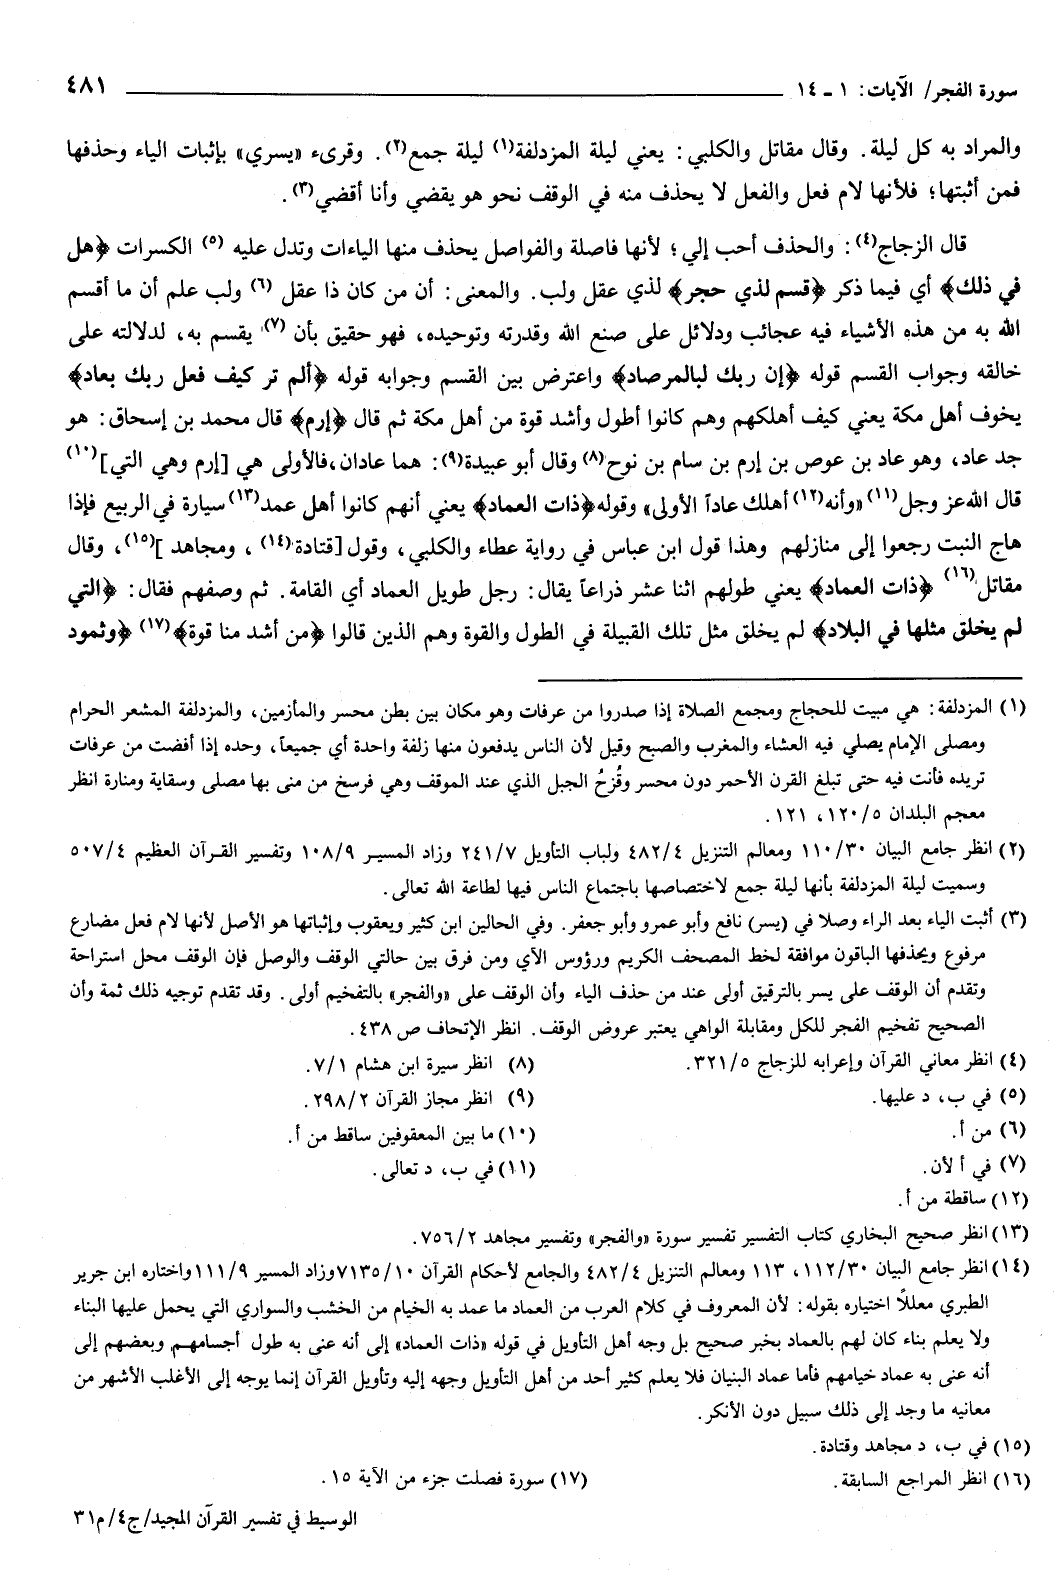 سورة الفجر/ الآيات: ١ ـ ١٤ ٤٨١
والمراد به كل ليلة. وقال مقاتل والكلبي: يعني ليلة المزدلفة(١) ليلة جمع(٢). وقرىء «يسري» بإثبات الياء وحذفها
فمن أثبتها؛ فلأنها لام فعل والفعل لا يحذف منه في الوقف نحو هو يقضي وأنا أقضي(٣).
قال الزجاج(٤): والحذف أحب إلي؛ لأنها فاصلة والفواصل يحذف منها الياءات وتدل عليه (٥) الكسرات ﴿هل
في ذلك﴾ أي فيما ذكر ﴿قسم لذي حجر﴾ لذي عقل ولب. والمعنى: أن من كان ذا عقل (٦) ولب علم أن ما أقسم
الله به من هذه الأشياء فيه عجائب ودلائل على صنع الله وقدرته وتوحيده، فهو حقيق بأن (٧) يقسم به، لدلالته على
خالقه وجواب القسم قوله ﴿إن ربك لبالمرصاد﴾ واعترض بين القسم وجوابه قوله ﴿ألم تر كيف فعل ربك بعاد﴾
يخوف أهل مكة يعني كيف أهلكهم وهم كانوا أطول وأشد قوة من أهل مكة ثم قال ﴿إرم﴾ قال محمد بن إسحاق: هو
جد عاد، وهو عاد بن عوص بن إرم بن سام بن نوح(٨) وقال أبو عبيدة(٩): هما عادان، فالأولى هي [إرم وهي التي](١٠)
قال الله عز وجل(١١) «وأنه(١٢) أهلك عاداً الأولى» وقوله ﴿ذات العماد﴾ يعني أنهم كانوا أهل عمد(١٣) سيارة في الربيع فإذا
هاج النبت رجعوا إلى منازلهم وهذا قول ابن عباس في رواية عطاء والكلبي، وقول [قتادة(١٤)، ومجاهد](١٥)، وقال
مقاتل(١٦) ﴿ذات العماد﴾ يعني طولهم اثنا عشر ذراعاً يقال: رجل طويل العماد أي القامة. ثم وصفهم فقال: ﴿التي
لم يخلق مثلها في البلاد﴾ لم يخلق مثل تلك القبيلة في الطول والقوة وهم الذين قالوا ﴿من أشد منا قوة﴾(١٧) ﴿وثمود
(١) المزدلفة: هي مبيت للحجاج ومجمع الصلاة إذا صدروا من عرفات وهو مكان بين بطن محسر والمأزمين، والمزدلفة المشعر الحرام
ومصلى الإمام يصلي فيه العشاء والمغرب والصبح وقيل لأن الناس يدفعون منها زلفة واحدة أي جميعاً، وحده إذا أفضت من عرفات
تريده فأنت فيه حتى تبلغ القرن الأحمر دون محسر وقُزحُ الجبل الذي عند الموقف وهي فرسخ من منى بها مصلى وسقاية ومنارة انظر
معجم البلدان ١٢٠/٥، ١٢١.
(٢) انظر جامع البيان ١١٠/٣٠ ومعالم التنزيل ٤٨٢/٤ ولباب التأويل ٢٤١/٧ وزاد المسير ١٠٨/٩ وتفسير القرآن العظيم ٥٠٧/٤
وسميت ليلة المزدلفة بأنها ليلة جمع لاختصاصها باجتماع الناس فيها لطاعة الله تعالى.
(٣) أثبت الياء بعد الراء وصلا في (يسر) نافع وأبو عمرو وأبو جعفر. وفي الحالين ابن كثير ويعقوب وإثباتها هو الأصل لأنها لام فعل مضارع
مرفوع ويحذفها الباقون موافقة لخط المصحف الكريم ورؤوس الآي ومن فرق بين حالتي الوقف والوصل فإن الوقف محل استراحة
وتقدم أن الوقف على يسر بالترقيق أولى عند من حذف الياء وأن الوقف على «والفجر» بالتفخيم أولى. وقد تقدم توجيه ذلك ثمة وأن
الصحيح تفخيم الفجر للكل ومقابلة الواهي يعتبر عروض الوقف. انظر الإتحاف ص ٤٣٨.
(٤) انظر معاني القرآن وإعرابه للزجاج ٣٢١/٥. (٨) انظر سيرة ابن هشام ٧/١.
(٥) في ب، د عليها. (٩) انظر مجاز القرآن ٢٩٨/٢.
(٦) من أ. (١٠) ما بين المعقوفين ساقط من أ.
(٧) في أ لأن. (١١) في ب، د تعالى.
(١٢) ساقطة من أ.
(١٣) انظر صحيح البخاري كتاب التفسير تفسير سورة «والفجر» وتفسير مجاهد ٧٥٦/٢.
(١٤) انظر جامع البيان ١١٢/٣٠، ١١٣ ومعالم التنزيل ٤٨٢/٤ والجامع لأحكام القرآن ٧١٣٥/١٠ وزاد المسير ١١١/٩ واختاره ابن جرير
الطبري معللاً اختياره بقوله: لأن المعروف في كلام العرب من العماد ما عمد به الخيام من الخشب والسواري التي يحمل عليها البناء
ولا يعلم بناء كان لهم بالعماد بخبر صحيح بل وجه أهل التأويل في قوله «ذات العماد» إلى أنه عنى به طول أجسامهم وبعضهم إلى
أنه عنى به عماد خيامهم فأما عماد البنيان فلا يعلم كثير أحد من أهل التأويل وجهه إليه وتأويل القرآن إنما يوجه إلى الأغلب الأشهر من
معانيه ما وجد إلى ذلك سبيل دون الأنكر.
(١٥) في ب، د مجاهد وقتادة.
(١٦) انظر المراجع السابقة. (١٧) سورة فصلت جزء من الآية ١٥.
الوسيط في تفسير القرآن المجيد/ج٤/م٣١